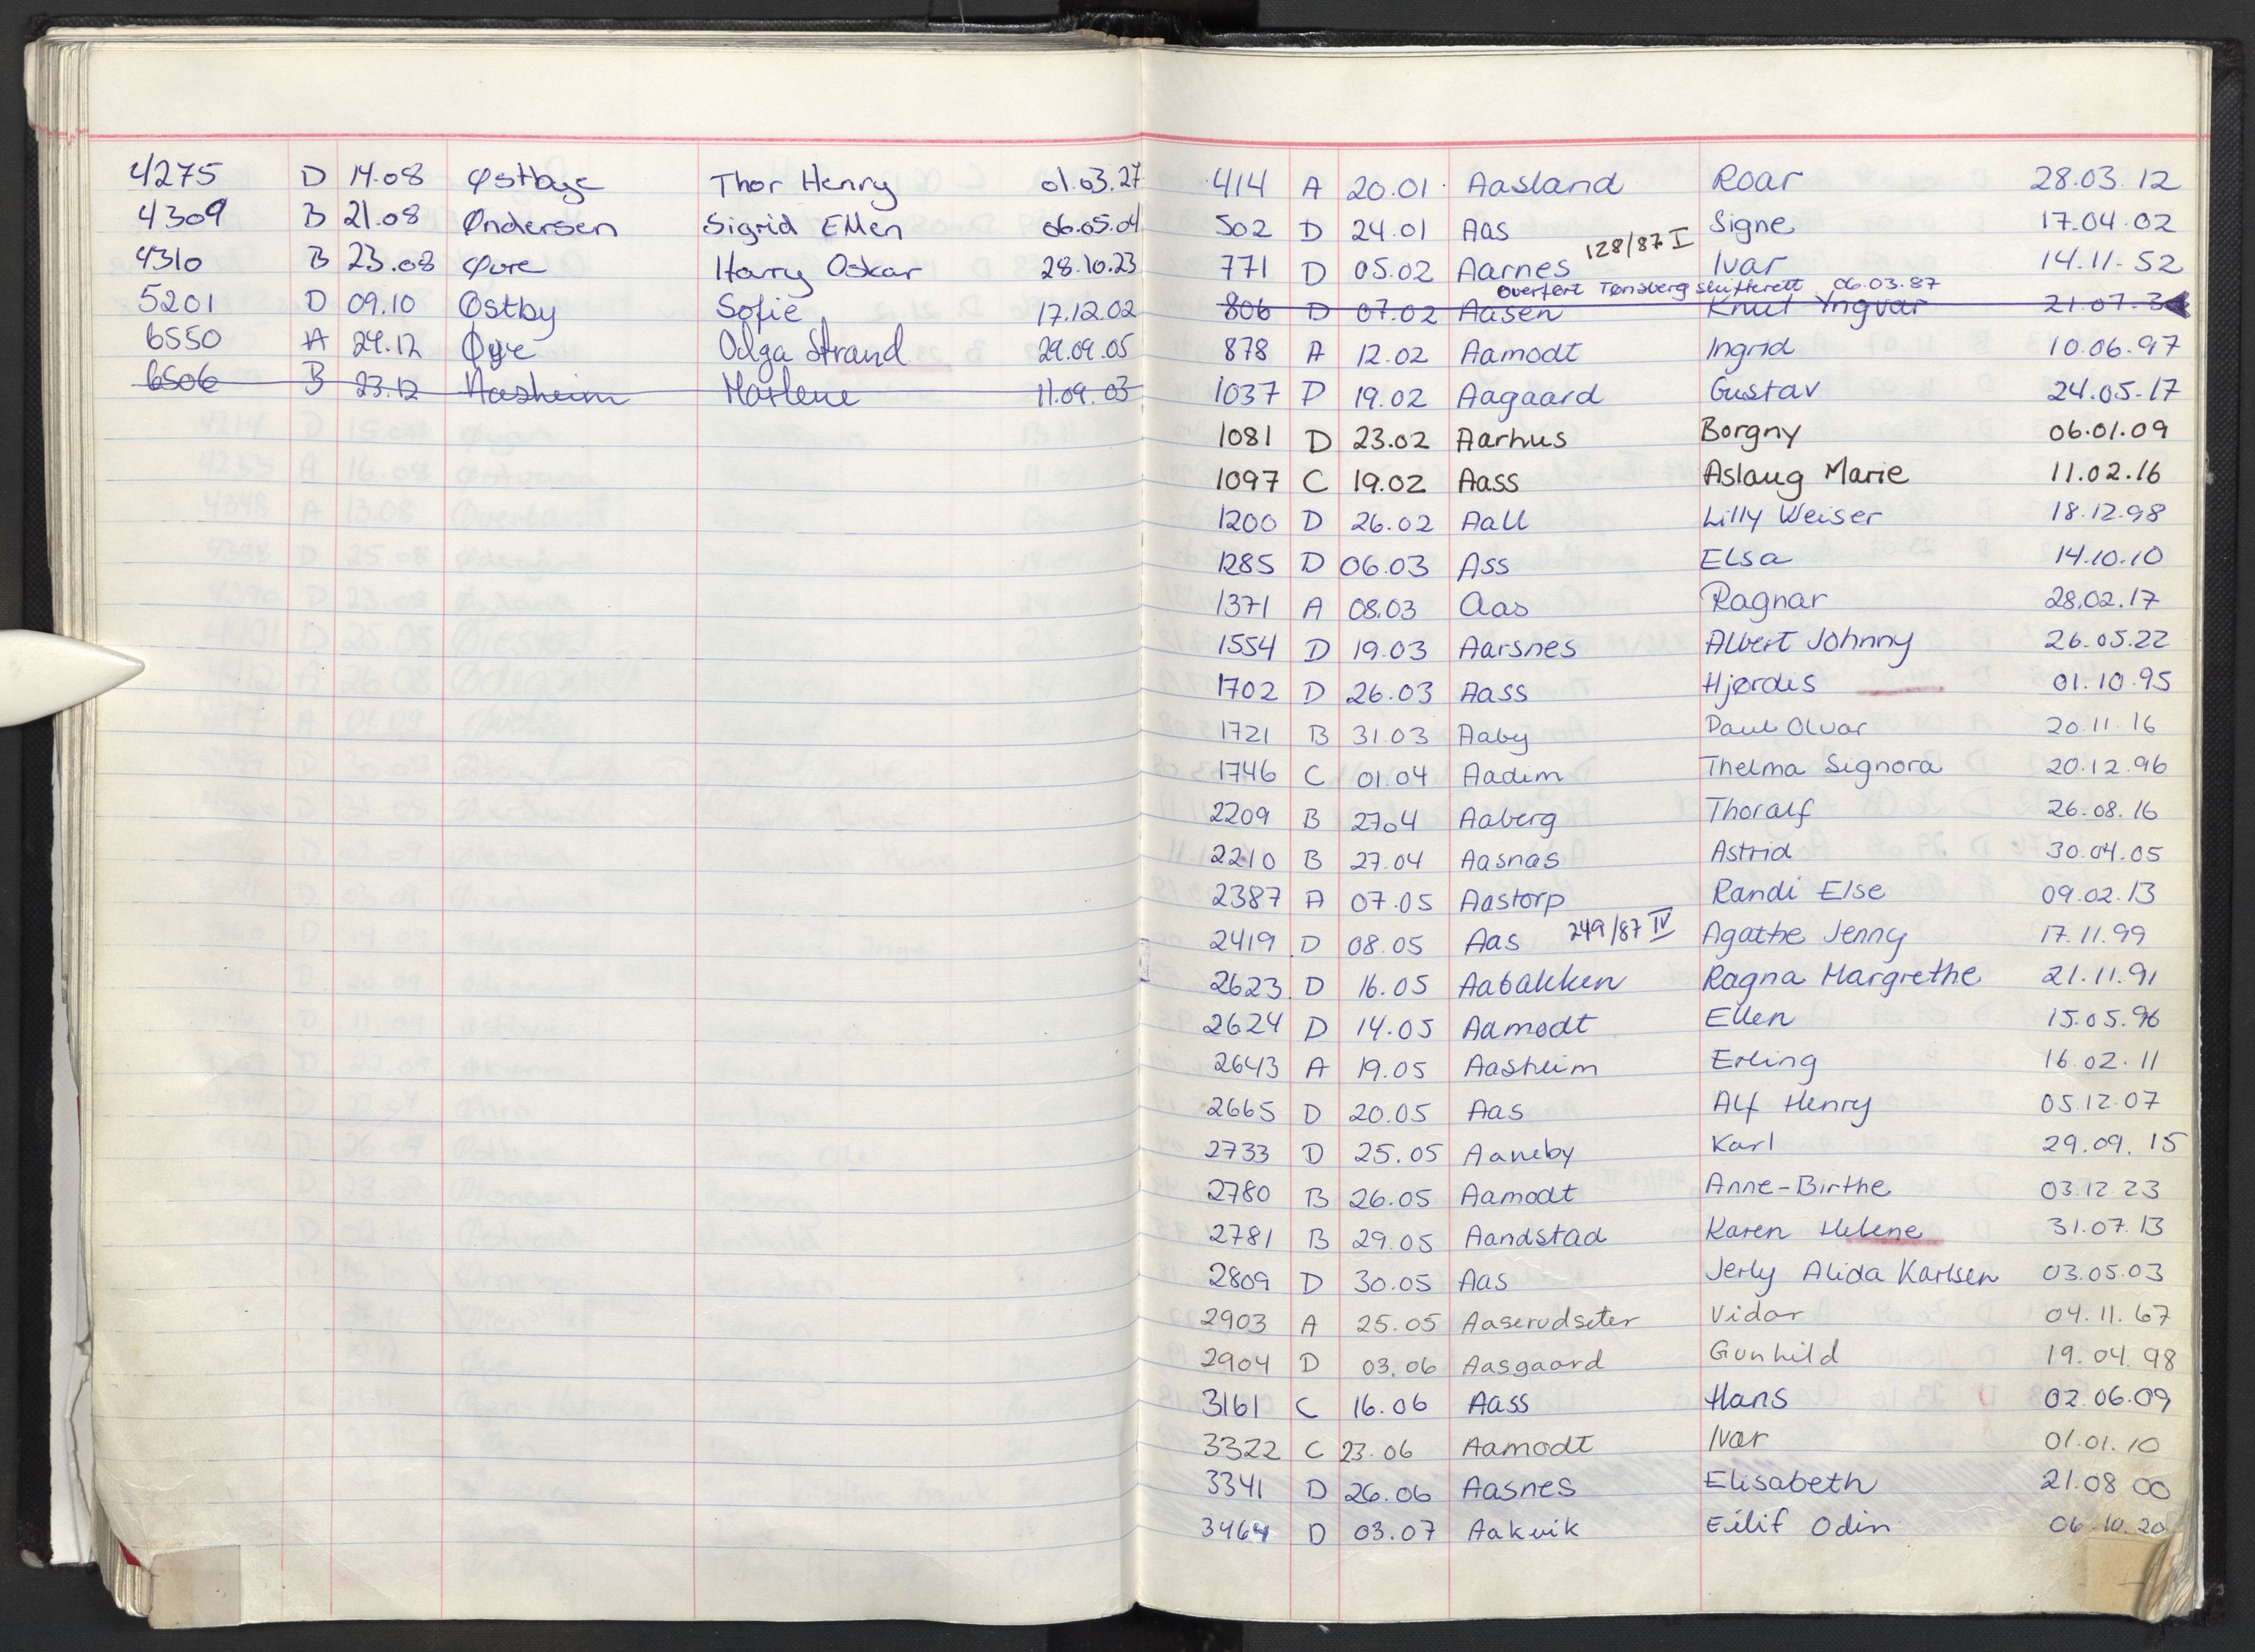 4275 D 14.08 Østbye Thor Henry 01.03.27
4309 B 21.08 Øndersen Sigrid Ellen 06.05.04
4310 B 23.08 Øvre Harry Oskar 28.10.23
5201 D 09.10 Østby Sofie 17.12.02
6550 A 29.12 Øye Olga Strand 29.09.05
6506 B 23.12 Aasheim Marlene 11.09.03
414 A 20.01 Aasland Roar 28.03.12
502 D 24.01 Aas Signe 17.04.02
771 D 05.02 Aarnes 128/87 I Ivar 14.11.52
overført Tønsberg skifterett 06.03.87
806 D 07.02 Aasen Knut Yngvar 21.07.3
878 A 12.02 Aamodt Ingrid 10.06.97
1037 D 19.02 Aagaard Gustav 24.05.17
1081 D 23.02 Aarhus Borgny 06.01.09
1097 C 19.02 Aass Aslaug Marie 11.02.16
1200 D 26.02 Aall Lilly Weiser 18.12.98
1285 D 06.03 Ass Elsa 14.10.10
1371 A 08.03 Aas Ragnar 28.02.17
1554 D 19.03 Aarsnes Albert Johnny 26.05.22
1702 D 26.03 Aass Hjørdis 01.10.95
1721 B 31.03 Aaby Paul Olvar 20.11.16
1746 C 01.04 Aadim Thelma Signora 20.12.96
2209 B 27.04 Aaberg Thoralf 26.08.16
2210 B 27.04 Aasnas Astrid 30.04.05
2387 A 07.05 Aastorp Randi Else 09.02.13
2419 D 08.05 Aas 249/87 IV Agathe Jenny 17.11.99
2623 D 16.05 Aabakken Ragna Margrethe 21.11.91
2624 D 14.05 Aamodt Ellen 15.05.96
2643 A 19.05 Aasheim Erling 16.02.11
2665 D 20.05 Aas Alf Henry 05.12.07
2733 D 25.05 Aaneby Karl 29.09.15
2780 B 26.05 Aamodt Anne-Birthe 03.12.23
2781 B 29.05 Aandstad Karen Helene 31.07.13
2809 D 30.05 Aas Jerly Alida Karlsen 03.05.03
2903 A 25.05 Aaserudseter Vidar 04.11.67
2904 D 03.06 Aasgaard Gunhild 19.04.98
3161 C 16.06 Aass Hans 02.06.09
3322 C 23.06 Aamodt Ivar 01.01.10
3341 D 26.06 Aasnes Elisabeth 21.08.00
3464 D 03.07 Aakvik Eilif Odin 06.10.20